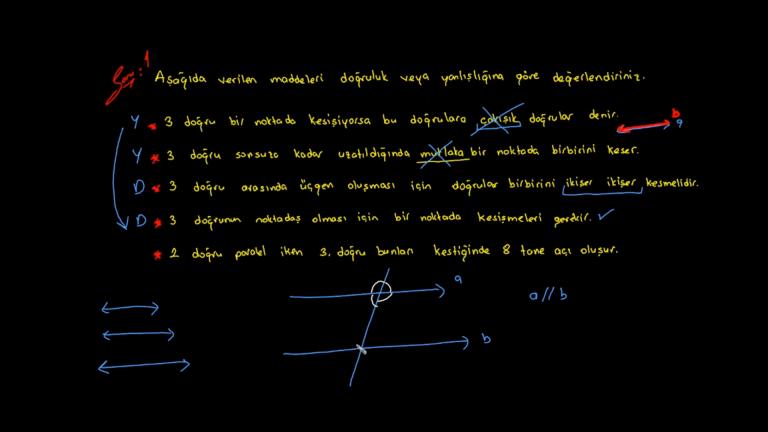 Soru: 1
Aşağıda verilen maddeleri doğruluk veya yanlışlığına göre değerlendiriniz.
Y * 3 doğru bir noktada kesişiyorsa bu doğrulara çakışık doğrular denir.
b
a
Y * 3 doğru sonsuza kadar uzatıldığında mutlaka bir noktada birbirini keser.
D * 3 doğru arasında üçgen oluşması için doğrular birbirini ikişer ikişer kesmelidir.
D * 3 doğrunun noktadaş olması için bir noktada kesişmeleri gerekir. ✓
* 2 doğru paralel iken 3. doğru bunları kestiğinde 8 tane açı oluşur.
a
a//b
b